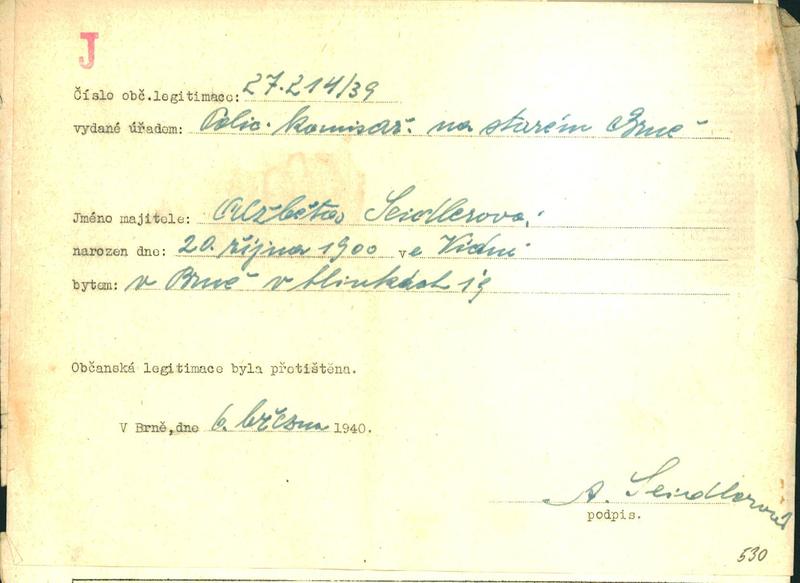 J
Číslo obč.legitimace: 27.214/39
vydané úřadem: Polic. komisař. na starém Brně
Jméno majitele: Alžběta Seidlerová,
narozen dne: 20. října 1900 ve Vídni
bytem: v Brně v hlinkách 19
Občanská legitimace byla přetištěna.
V Brně,dne 6. března 1940.
A. Seidlerová
podpis.
530